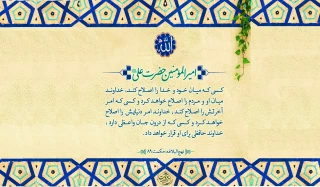 الله
امیرالمومنین حضرت علی
کسی که میان خود و خدا را اصلاح کند، خداوند
میان او و مردم را اصلاح خواهد کرد و کسی که امر
آخرتش را اصلاح کند، خداوند امر دنیایش را اصلاح
خواهد کرد و کسی که از درون جان واعظی دارد،
خداوند حافظی برای او قرار خواهد داد.
نهج البلاغه، حکمت ۸۹